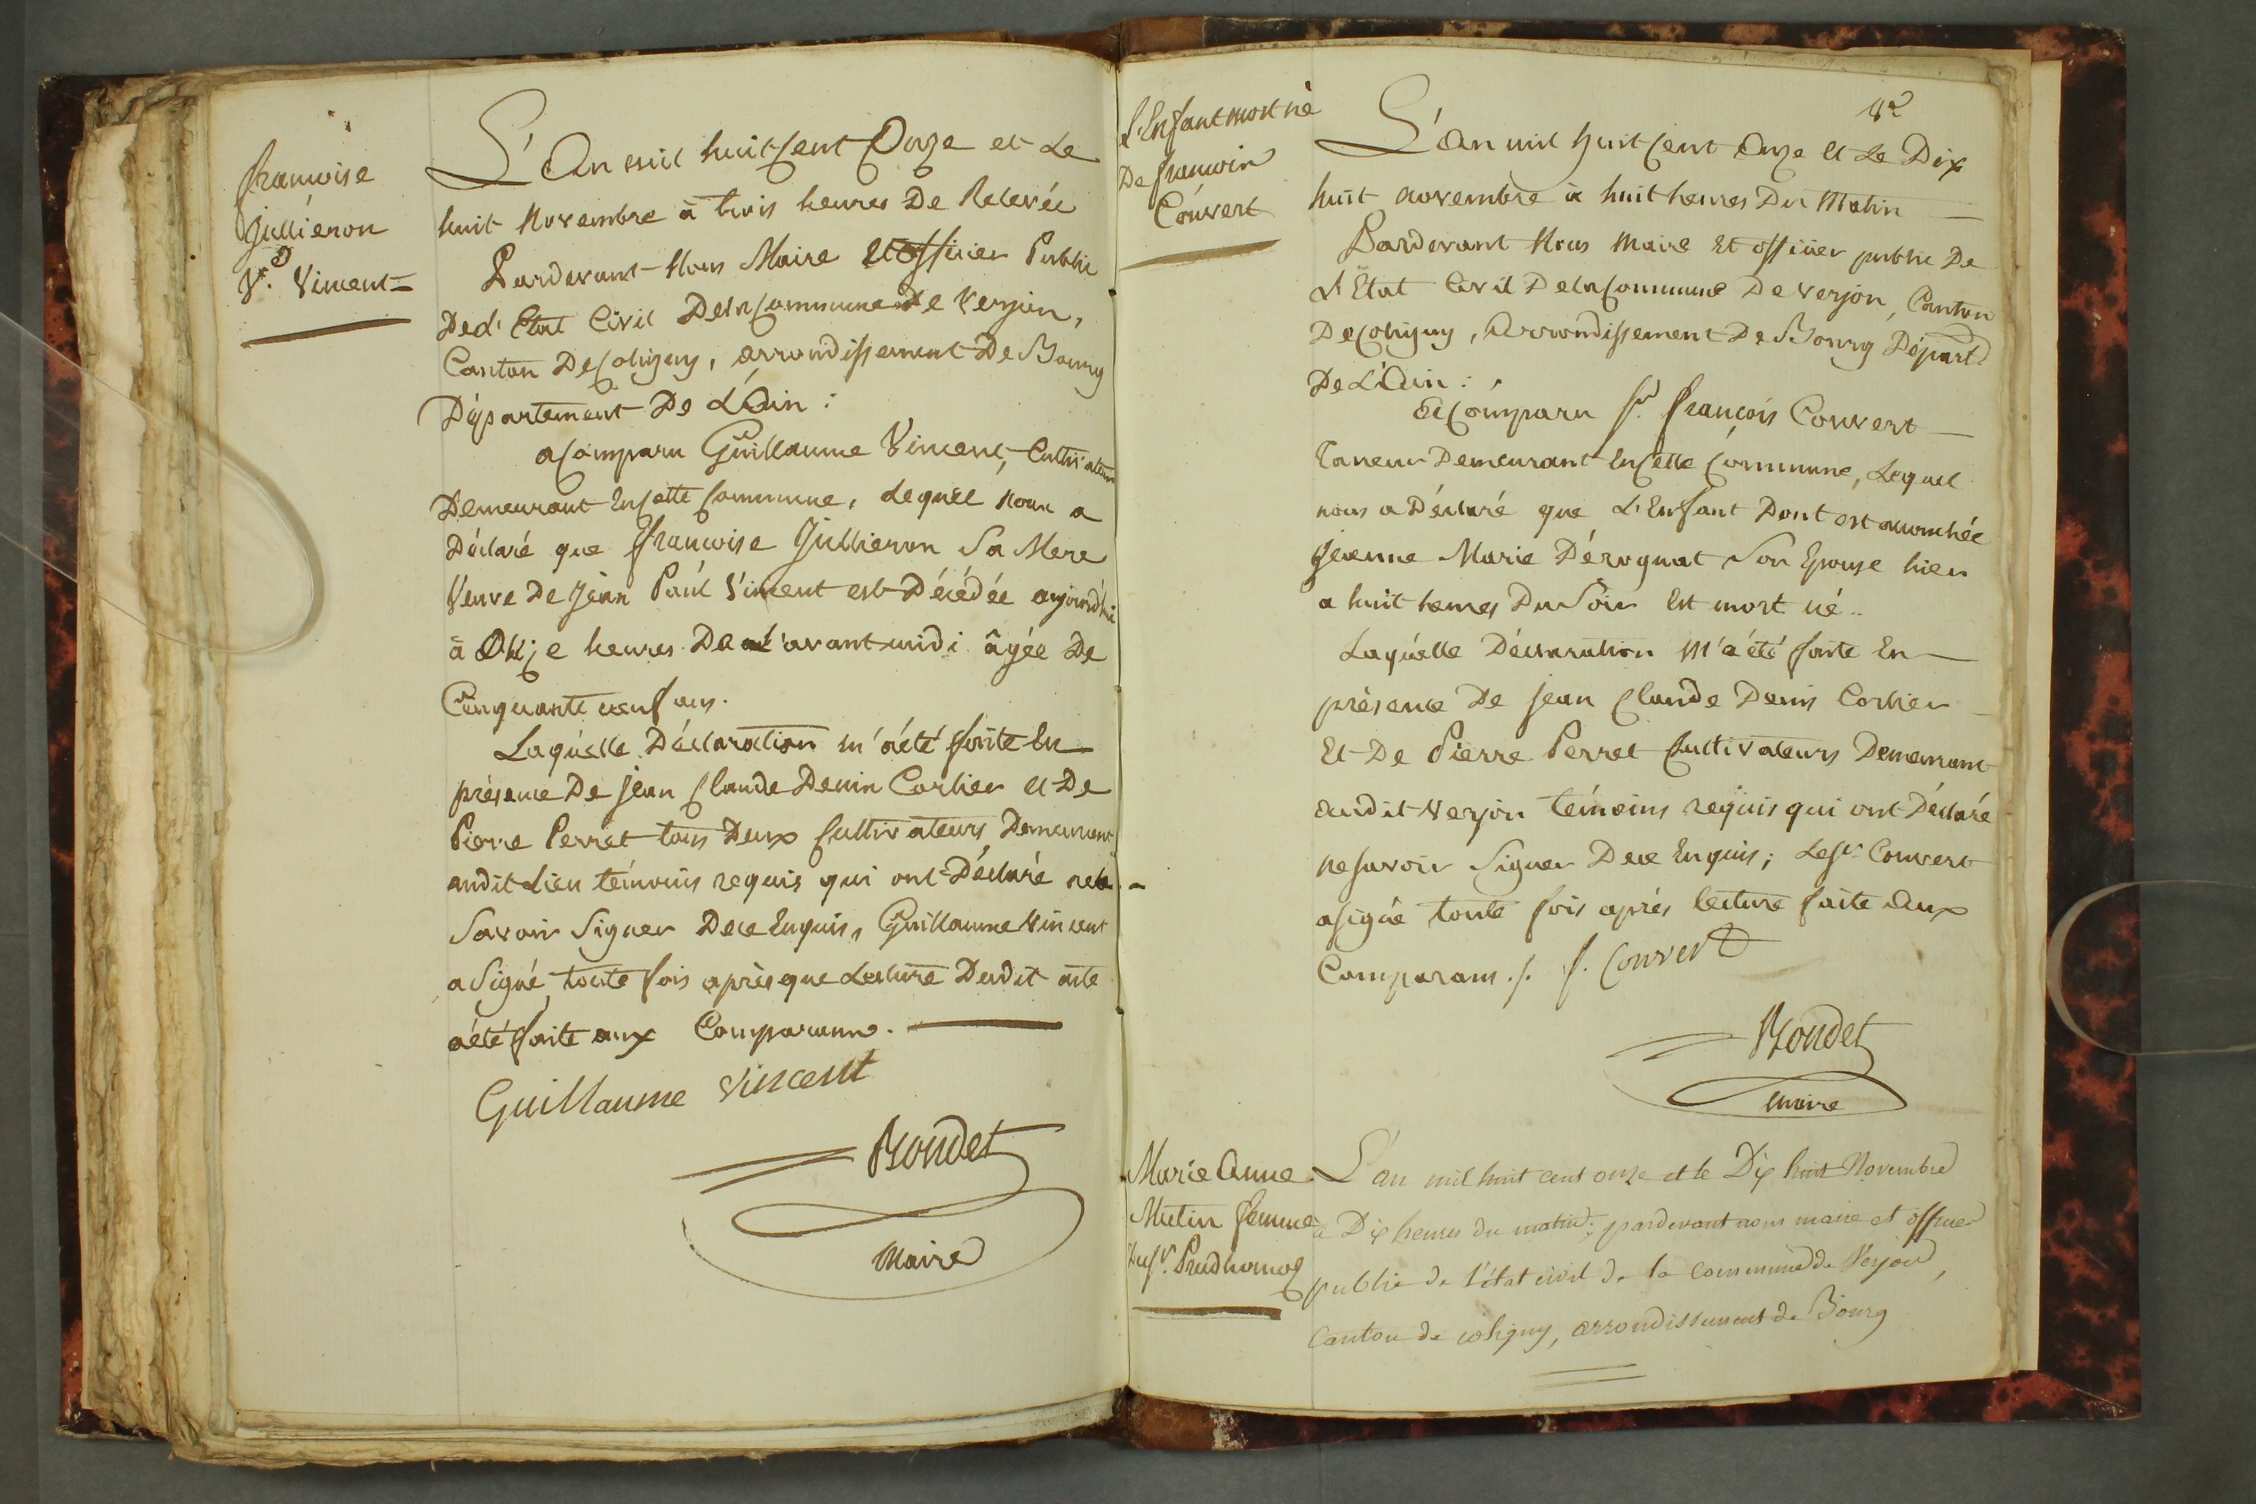 francoise
Jullieron
Ve. Vincent =
L'An mil huit Cent Onze et Le
huit Novembre à trois heures De Relevée
Pardevant Nous Maire Et officier Public
De L'Etat Civil De la Commune De Verjon,
Canton De Coligny, arrondissement De Bourg
Département De L'Ain :
a Comparu Guillaume Vincent, Cultivateur
Demeurant En Cette Commune, Lequel nous a
Déclaré que francoise Jullieron Sa Mere
Veuve De Jean Paul Vincent est Décédée aujourdhui
à Onze heures De L'avant midi âgée De
Cinquante neuf ans.
Laquelle Déclaration m'a été faite En
présence De Jean Claude Denis Corlier et De
Pierre Perret tous Deux Cultivateurs Demeurant
audit Lieu témoins requis qui ont Déclaré ne
Savoir Signer De ce Enquis, Guillaume Vincent
a Signé toute fois après que Lecture Dudit acte
a été faite aux Comparans.
Guillaume Vincent
Rondet
Maire
L'Enfant mort né
De francois
Convert
L'An mil huit Cent Onze Et Le Dix
huit novembre à huit heures Du Matin
Pardevant Nous Maire Et officier public De
L'Etat Civil De la Commune De Verjon, Canton
De Coligny, Arrondissement De Bourg Départ
De L'Ain :
A Comparu Sr. françois Convert
Taneur Demeurant En Cette Commune, Lequel
nous a Déclaré que L'Enfant Dont est accouchée
Jeanne Marie Dérognat Son Epouse hier
a huit heures Du Soir Est mort né..
Laquelle Déclaration M'a été faite En
présence De Jean Claude Denis Corlier
Et De Pierre Perret Cultivateurs Demeurant
audit Verjon témoins requis qui ont Déclaré
ne Savoir Signer De ce Enquis; Le Sr. Convert
a Signé toute fois après lecture faite aux
Comparans ./. f. Convert
Rondet
Maire
Marie Anne
Mutin femme
du Sr. Prudhomme
L'an mil huit cent onze et le Dix huit Novembre
à Dix heures du matin; pardevant nous maire et officier
public de l'état civil de la commune de Verjon,
Canton de coligny, arrondissement de Bourg